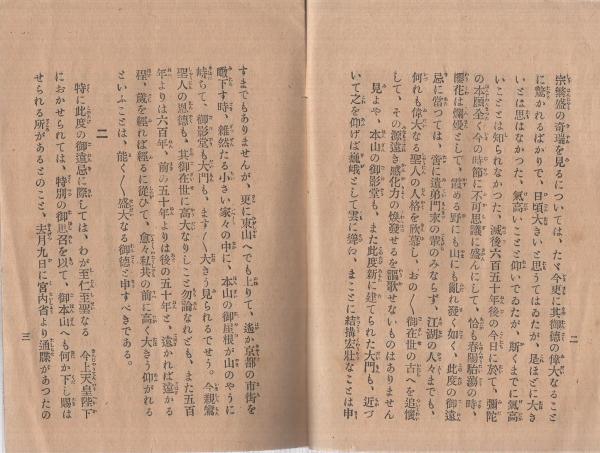 二
宗繁盛の奇瑞を見るについては、たゞ今更に其御德の偉大なること
に驚かれるばかりで、日頃大きいと思うてはゐたが、是ほどに大き
いとは思はなかつた、氣高いことと仰いでゐたが、斯くまでに氣高
いこととは知られなかつた、滅後六百五十年後の今日に於て、彌陀
の本願全く今の時節に不可思議に盛んにして、恰も春陽駘蕩の時、
櫻花は爛熳として、霞める野にも山にも亂れ發く如く、此度の御遠
忌に當つては、啻に遺弟門末の輩のみならず、江湖の人々までも、
何れも偉大なる聖人の人格を欣慕し、おの〱御在世の古へを追懷
して、その深遠き感化力の煥發せるを謳歌せないものはありません
見よや、本山の御影堂も、また此度新に建てられた大門も、近づ
いて之を仰げば巍峨として雲に聳ゆ、まことに結搆宏壯なことは申
すまでもありませんが、更に東山へでも上りて、遙か京都の市街を
瞰下す時、雜然たる小さい家々の中に、本山の御屋根が山のやうに
峙ちて、御影堂も大門も、ます〱大きう見られるでせう。今親鸞
聖人の恩德も、其御在世に高大なりしこと勿論なれども、また五百
年よりは六百年、前の五十年よりは後の五十年と、遠かれば遠かる
程、歲を經れば經るに從ひて、愈々私共の前に高く大きう仰がれる
といふことは、能く〱盛大なる御德と申すべきである。
二
特に此度の御遠忌に際しては、わが至仁至聖なる 今上天皇陛下
におかせられては、特別の御思召を以て、御本山へも何か下し賜は
せられる所があるとのこと、去月九日に宮内省より通牒があつたの
三